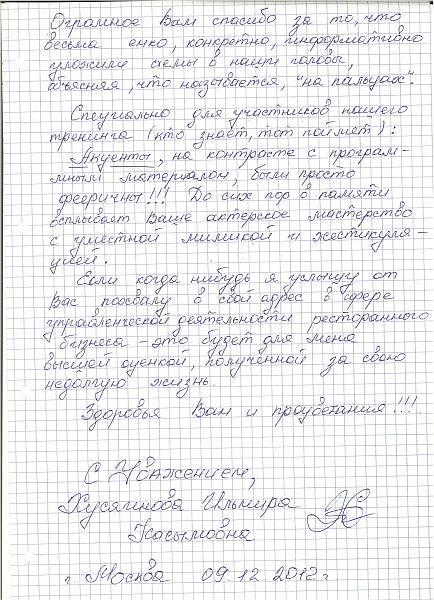 Огромное Вам спасибо за то, что
весьма емко, конкретно, информативно
уложили схемы в наши головы,
объясняя, что называется, "на пальцах".
Специально для участников нашего
тренинга (кто знает, тот поймет):
Акценты, на контрасте с програм-
мным материалом, были просто
фееричны!!! До сих пор в памяти
всплывает Ваше актерское мастерство
с уместной мимикой и жестикуля-
цией.
Если когда нибудь я услышу от
Вас похвалу в свой адрес в сфере
управленческой деятельности ресторанного
бизнеса - это будет для меня
высшей оценкой, полученной за свою
недолгую жизнь.
Здоровья Вам и процветания!!!
С Уважением,
Хусяинова Ильмира
Касымовна
г. Москва 09.12.2012г